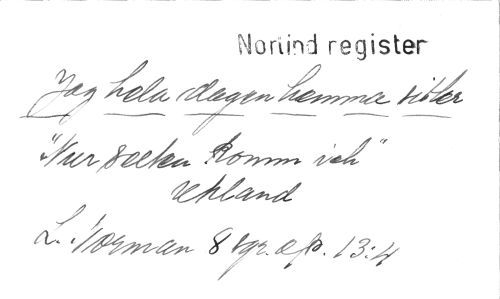 Norlind register
Jag hela dagen hemma sitter
"Nur selten komm ich"
Uhland
L. Norman 8 sgr. op. 13:4